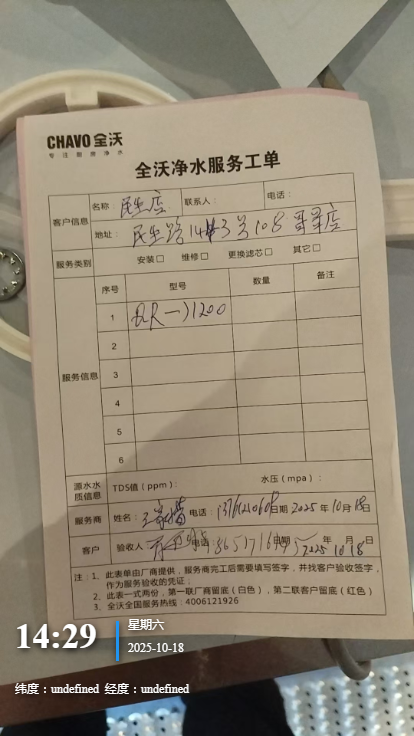 CHAVO 全沃
专注厨房净水
全沃净水服务工单
客户信息
名称 民生店 联系人： 电话：
地址： 民生路14 3 108
服务类别 安装□ 维修□ 更换滤芯□ 其它□
服务信息
序号 型号 数量 备注
1 1200
2
3
4
5
6
源水水质信息 TDS值（ppm）： 水压（mpa）：
服务商 姓名： 电话： 日期 2025年10月18日
客户 验收人 电话： 日期 2025年10月18日
注：1、此表单由厂商提供，服务商完工后需要填写签字，并找客户验收签字，
作为服务验收的凭证；
2、此表一式两份，第一联厂商留底（白色），第二联客户留底（红色）
3、全沃全国服务热线：4006121926
14:29
星期六
2025-10-18
纬度：undefined 经度：undefined